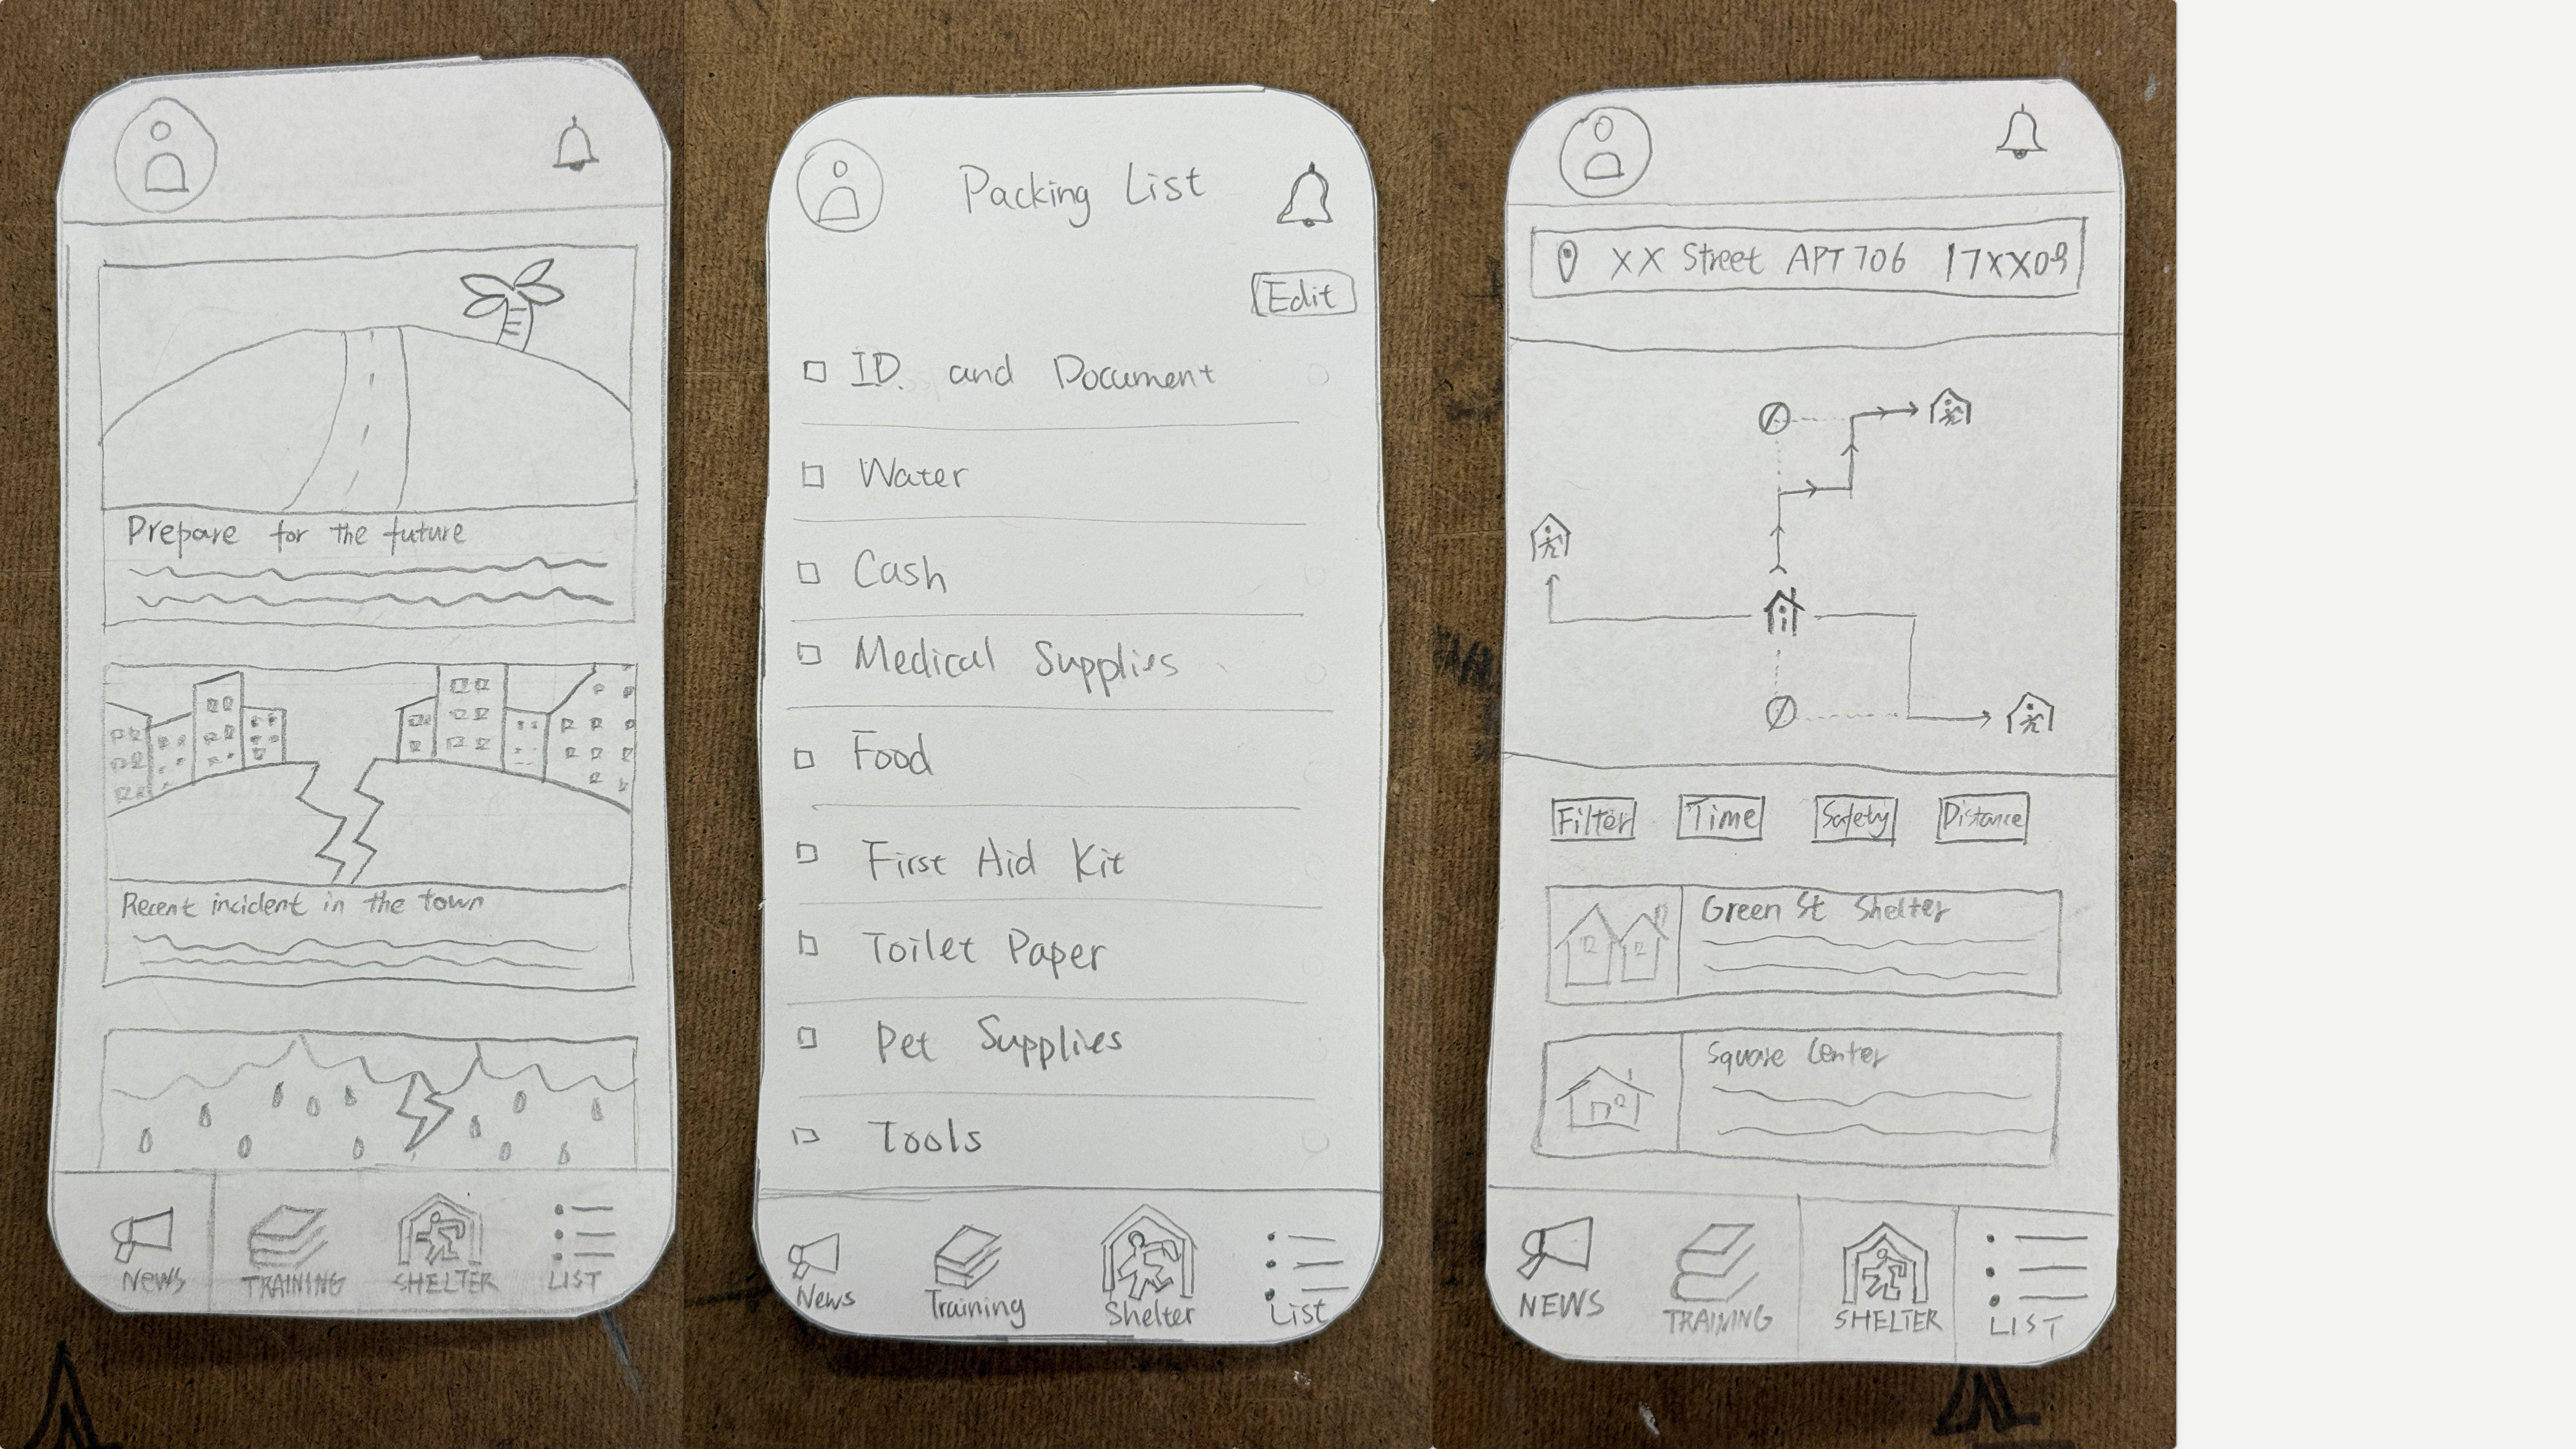 Prepare for the future
Recent incident in the town
NEWS TRAINING SHELTER LIST
Packing List
Edit
ID. and Document
Water
Cash
Medical Supplies
Food
First Aid Kit
Toilet Paper
Pet Supplies
Tools
News Training Shelter List
XX Street APT 706 17XX09
Filter Time Safety Distance
Green St Shelter
Square Center
NEWS TRAINING SHELTER LIST